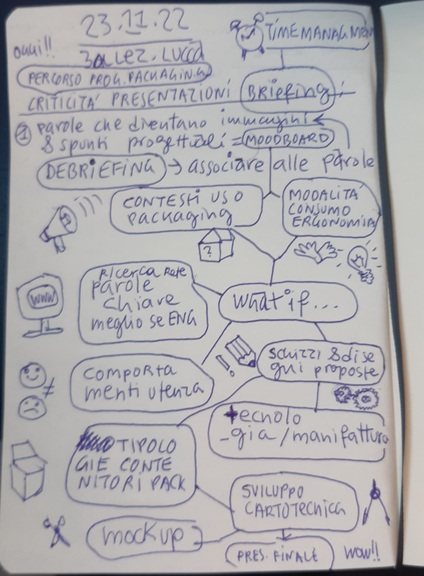 23.11.22
TIME MANAGMENT
3a LEZ. LUCCA
PERCORSO PROG. PACKAGING
CRITICITA' PRESENTAZIONI
BRIEFING
parole che diventano immagini
& spunti progettuali = MOODBOARD
DEBRIEFING → associare alle parole
CONTESTI USO
packaging
MODALITÀ
CONSUMO
ERGONOMIA
?
Ricerca Rete
parole
chiave
meglio se ENG
WWW
What if...
SCHIZZI & dise
gni proposte
COMPORTA
menti utenza
≠
tecnolo
-gia/manifattura
TIPOLO
GIE CONTE
NITORI PACK
SVILUPPO
CARTOTECNICA
mockup
PRES. FINALE
wow!!